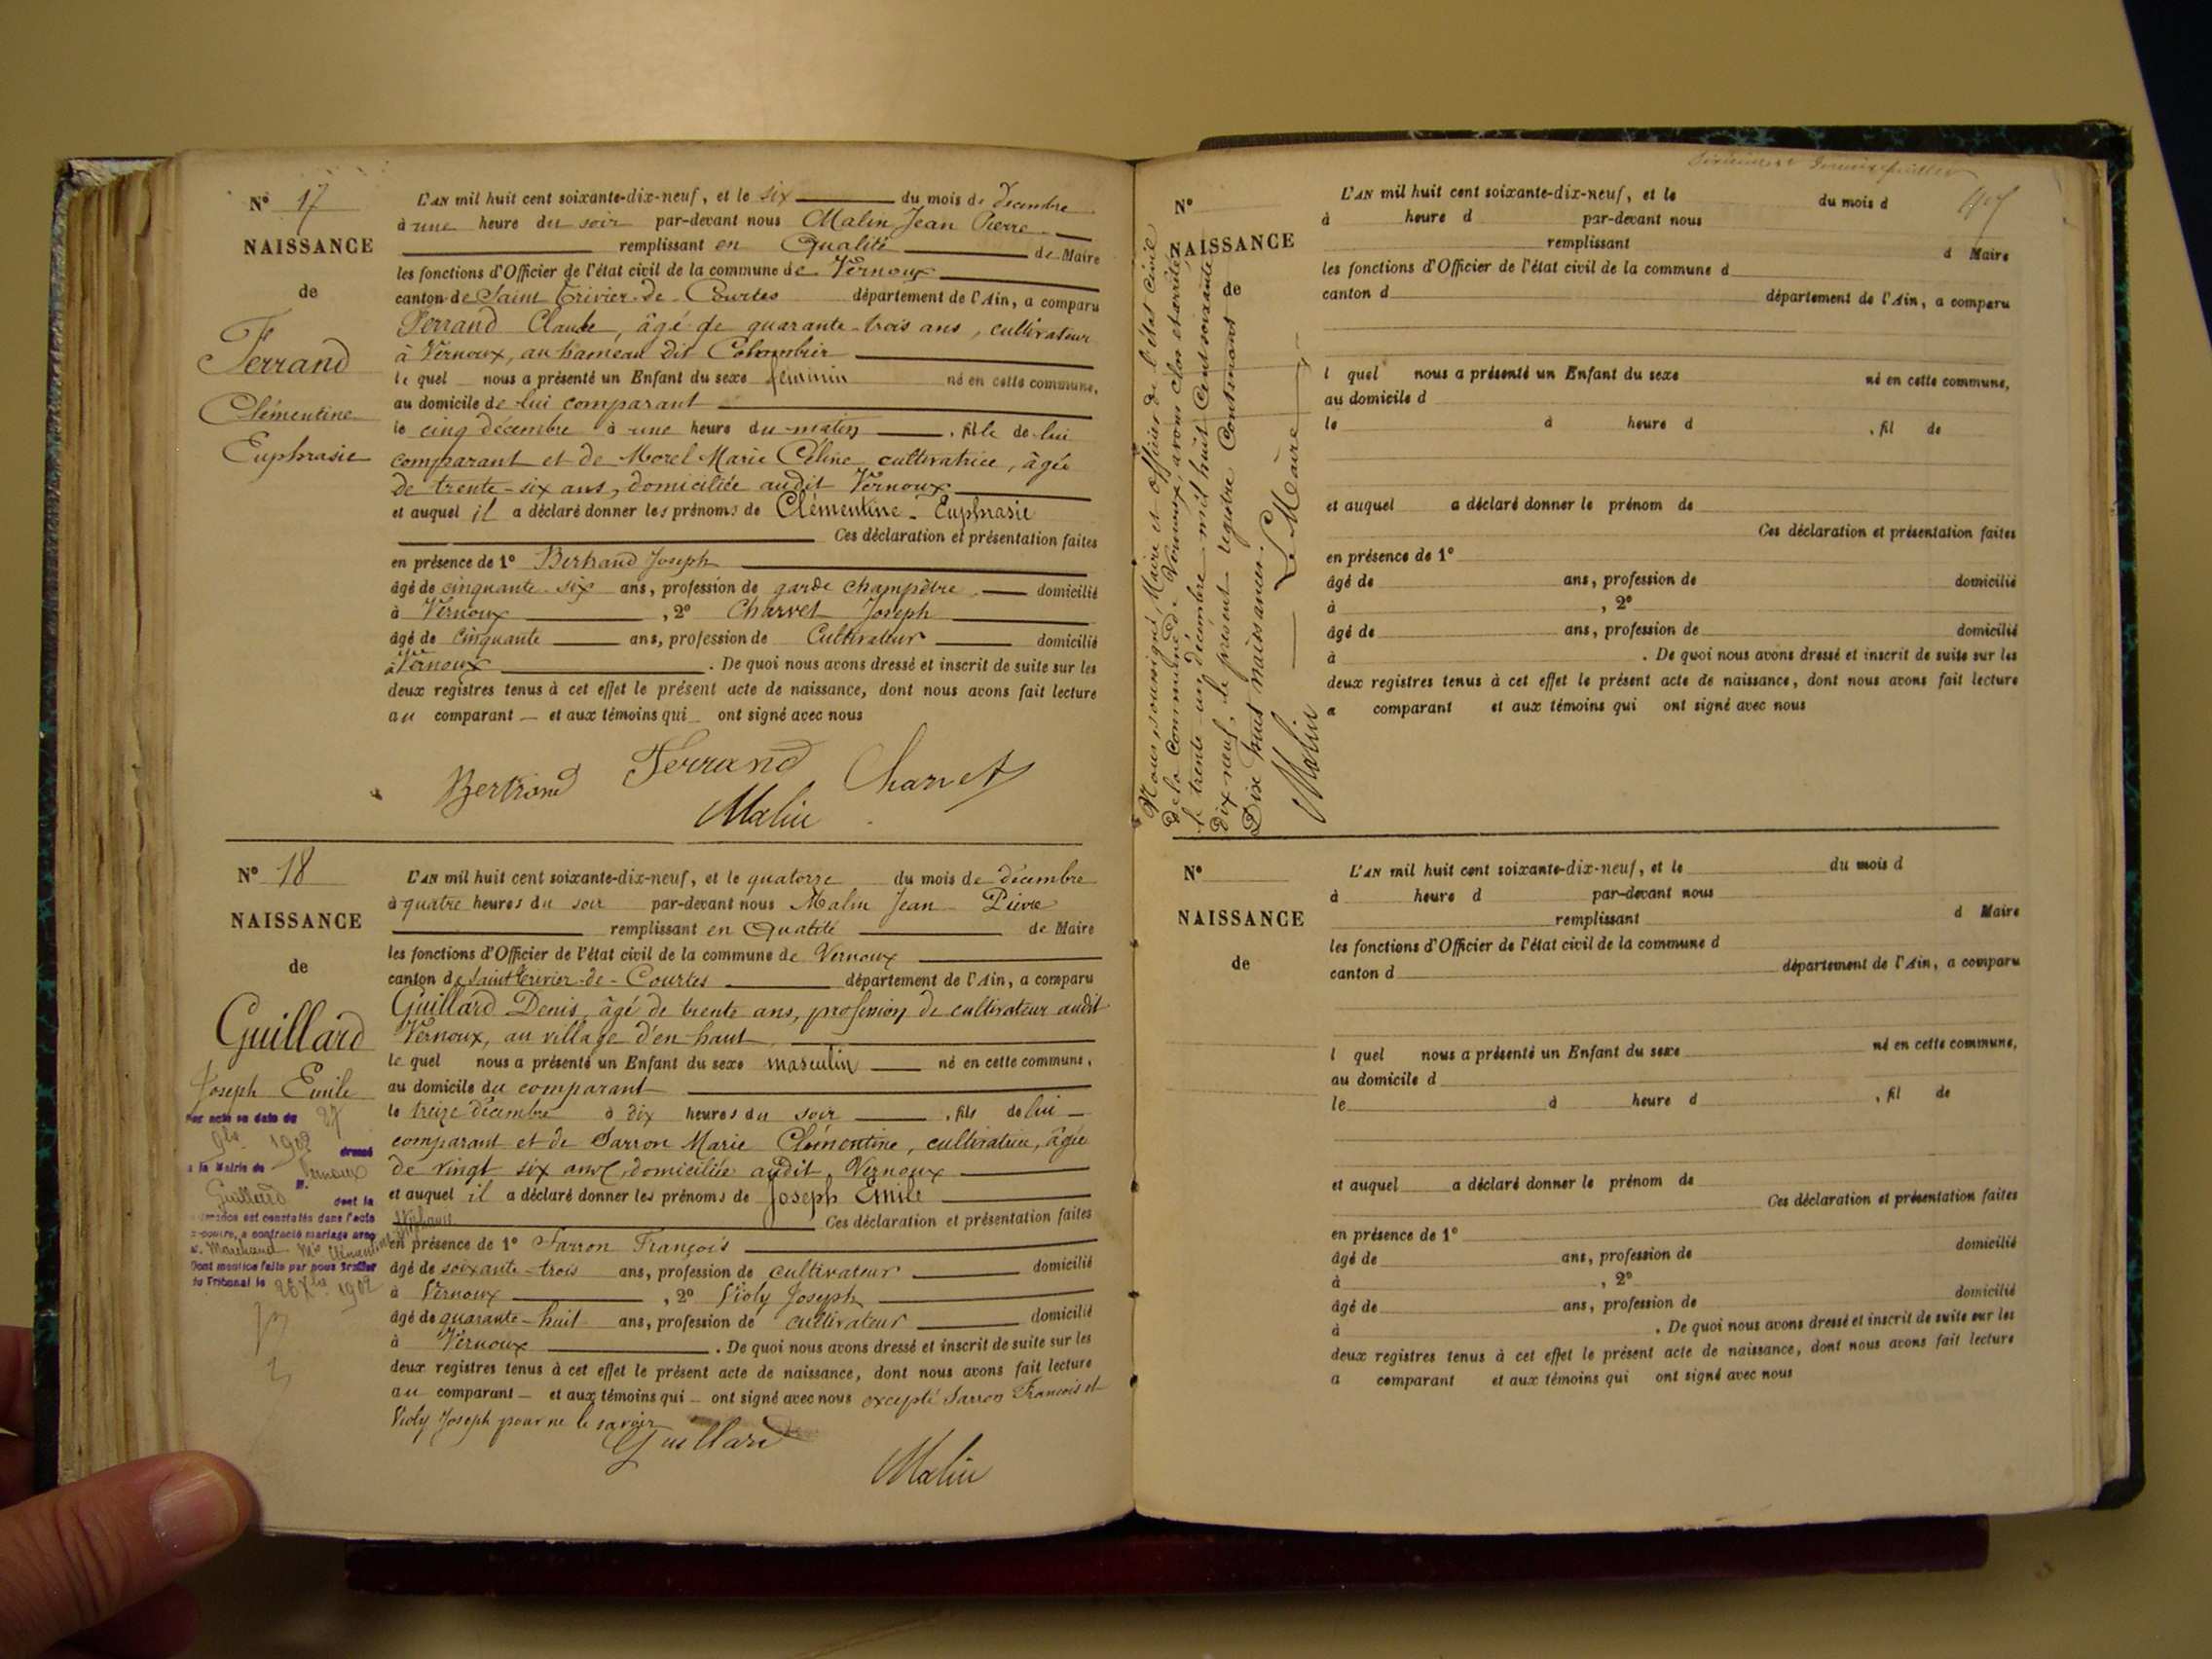 N° 17
NAISSANCE
de
Ferrand
Clémentine
Euphrasie
L'AN mil huit cent soixante-dix-neuf, et le six du mois de décembre
à une heure du soir par-devant nous Malin Jean Pierre
remplissant en Qualité de Maire
les fonctions d'Officier de l'état civil de la commune de Vernoux
canton de Saint Trivier-de-Courtes département de l'Ain, a comparu
Ferrand Claude, âgé de quarante-trois ans, cultivateur
à Vernoux, au hameau dit Colombier
le quel nous a présenté un Enfant du sexe féminin né en cette commune,
au domicile de lui comparant
le cinq décembre à une heure du matin, fille de lui
comparant et de Morel Marie Céline cultivatrice, âgée
de trente-six ans, domiciliée audit Vernoux
et auquel il a déclaré donner les prénoms de Clémentine-Euphrasie
Ces déclaration et présentation faites
en présence de 1° Bertrand Joseph
âgé de cinquante-six ans, profession de garde champêtre domicilié
à Vernoux, 2° Charvet Joseph
âgé de cinquante ans, profession de Cultivateur domicilié
à Vernoux. De quoi nous avons dressé et inscrit de suite sur les
deux registres tenus à cet effet le présent acte de naissance, dont nous avons fait lecture
au comparant et aux témoins qui ont signé avec nous
Bertrand Ferrand Charvet
Malin
N° 18
NAISSANCE
de
Guillard
Joseph Emile
Par acte en date du 27
9bre 1902 dressé
à la Mairie de Vernoux
M. Guillard dont la
naissance est constatée dans l'acte
ci-contre, a contracté mariage avec
Marchand Mie Clémentine
Dont mention faite par nous Greffier
du Tribunal le 26 Xbre 1902
L'AN mil huit cent soixante-dix-neuf, et le quatorze du mois de décembre
à quatre heures du soir par-devant nous Malin Jean Pierre
remplissant en Qualité de Maire
les fonctions d'Officier de l'état civil de la commune de Vernoux
canton de Saint Trivier-de-Courtes département de l'Ain, a comparu
Guillard Denis, âgé de trente ans, profession de cultivateur audit
Vernoux, au village d'en haut
le quel nous a présenté un Enfant du sexe masculin né en cette commune,
au domicile du comparant
le treize décembre à dix heures du soir, fils de lui
comparant et de Sarron Marie Clémentine, cultivatrice, âgée
de vingt six ans, domiciliée audit Vernoux
et auquel il a déclaré donner les prénoms de Joseph Emile
Ces déclaration et présentation faites
en présence de 1° Sarron François
âgé de soixante-trois ans, profession de cultivateur domicilié
à Vernoux, 2° Violy Joseph
âgé de quarante-huit ans, profession de cultivateur domicilié
à Vernoux. De quoi nous avons dressé et inscrit de suite sur les
deux registres tenus à cet effet le présent acte de naissance, dont nous avons fait lecture
au comparant et aux témoins qui ont signé avec nous excepté Sarron François et
Violy Joseph pour ne le savoir
Guillard
Malin
Nous soussigné, Maire et officier de l'état civil
de la commune de Vernoux, avons clos et arrêté
le trente-un décembre mil huit cent soixante
dix-neuf, le présent registre Contenant
Dix huit naissances.
Le Maire
Malin
N°
NAISSANCE
de
L'AN mil huit cent soixante-dix-neuf, et le du mois d
à heure d par-devant nous
remplissant d Maire
les fonctions d'Officier de l'état civil de la commune d
canton d département de l'Ain, a comparu
l quel nous a présenté un Enfant du sexe né en cette commune,
au domicile d
le à heure d , fil de
et auquel a déclaré donner le prénom de
Ces déclaration et présentation faites
en présence de 1°
âgé de ans, profession de domicilié
à , 2°
âgé de ans, profession de domicilié
à . De quoi nous avons dressé et inscrit de suite sur les
deux registres tenus à cet effet le présent acte de naissance, dont nous avons fait lecture
a comparant et aux témoins qui ont signé avec nous
N°
NAISSANCE
de
L'AN mil huit cent soixante-dix-neuf, et le du mois d
à heure d par-devant nous
remplissant d Maire
les fonctions d'Officier de l'état civil de la commune d
canton d département de l'Ain, a comparu
l quel nous a présenté un Enfant du sexe né en cette commune,
au domicile d
le à heure d , fil de
et auquel a déclaré donner le prénom de
Ces déclaration et présentation faites
en présence de 1°
âgé de ans, profession de domicilié
à , 2°
âgé de ans, profession de domicilié
à . De quoi nous avons dressé et inscrit de suite sur les
deux registres tenus à cet effet le présent acte de naissance, dont nous avons fait lecture
a comparant et aux témoins qui ont signé avec nous